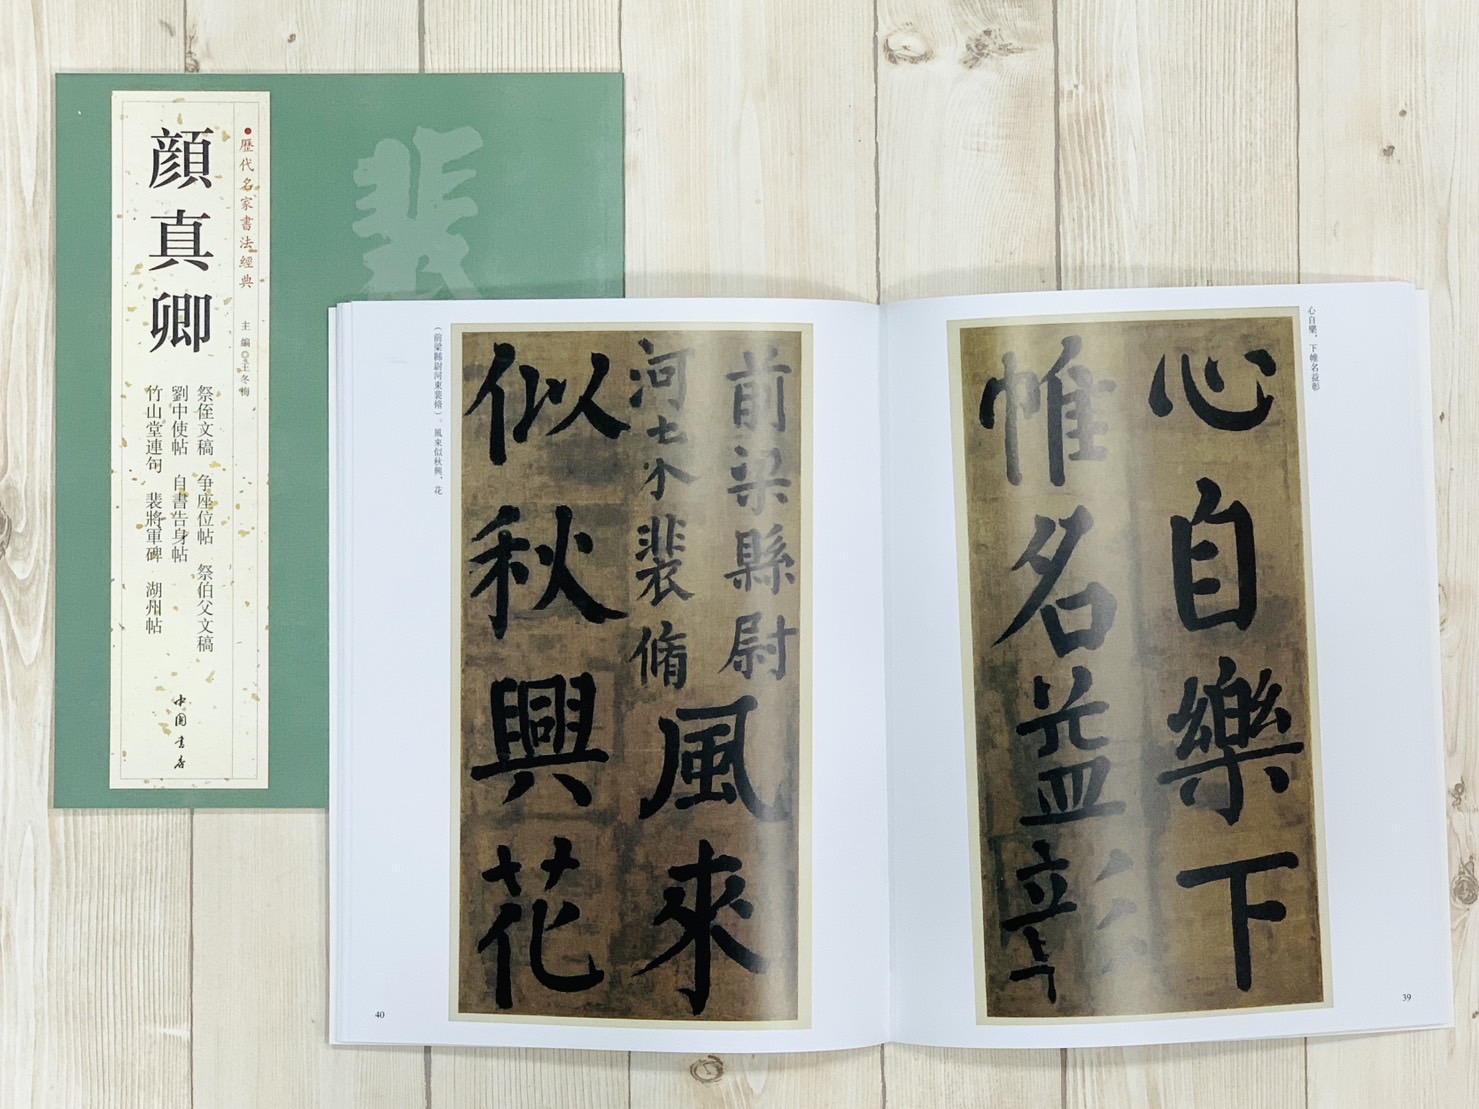 歷代名家書法經典
主編◎王冬梅
顔真卿
祭侄文稿 爭座位帖 祭伯父文稿
劉中使帖 自書告身帖
竹山堂連句 裴將軍碑 湖州帖
中国书店
裴
心自樂，下帷名益彰
心自樂下
帷名益彰
39
前梁縣尉
河東裴脩
風來
似秋興花
（前梁縣尉河東裴脩）。風來似秋興，花
40